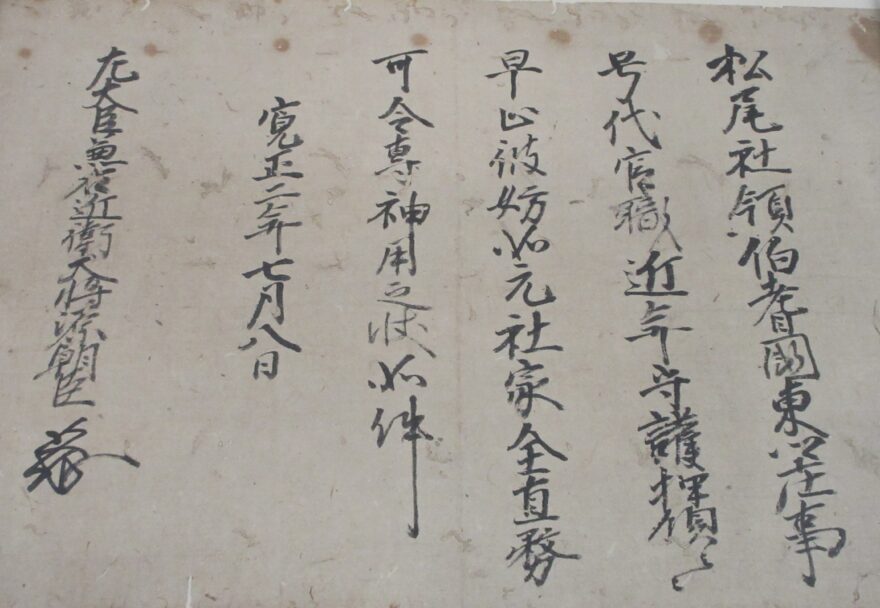 松尾社領伯耆國東郷庄事
号代官職近年守護押領云々
早止彼妨如元社家全直務
可令専神用之状如件
寛正二年七月八日
左大臣兼右近衛大将源朝臣